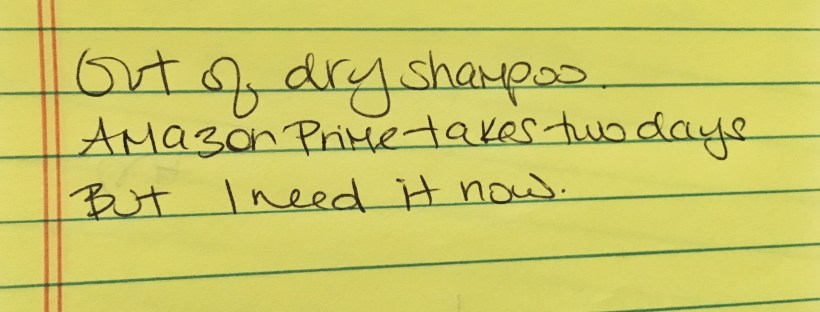 Out of dry shampoo.
Amazon Prime takes two days
But I need it now.